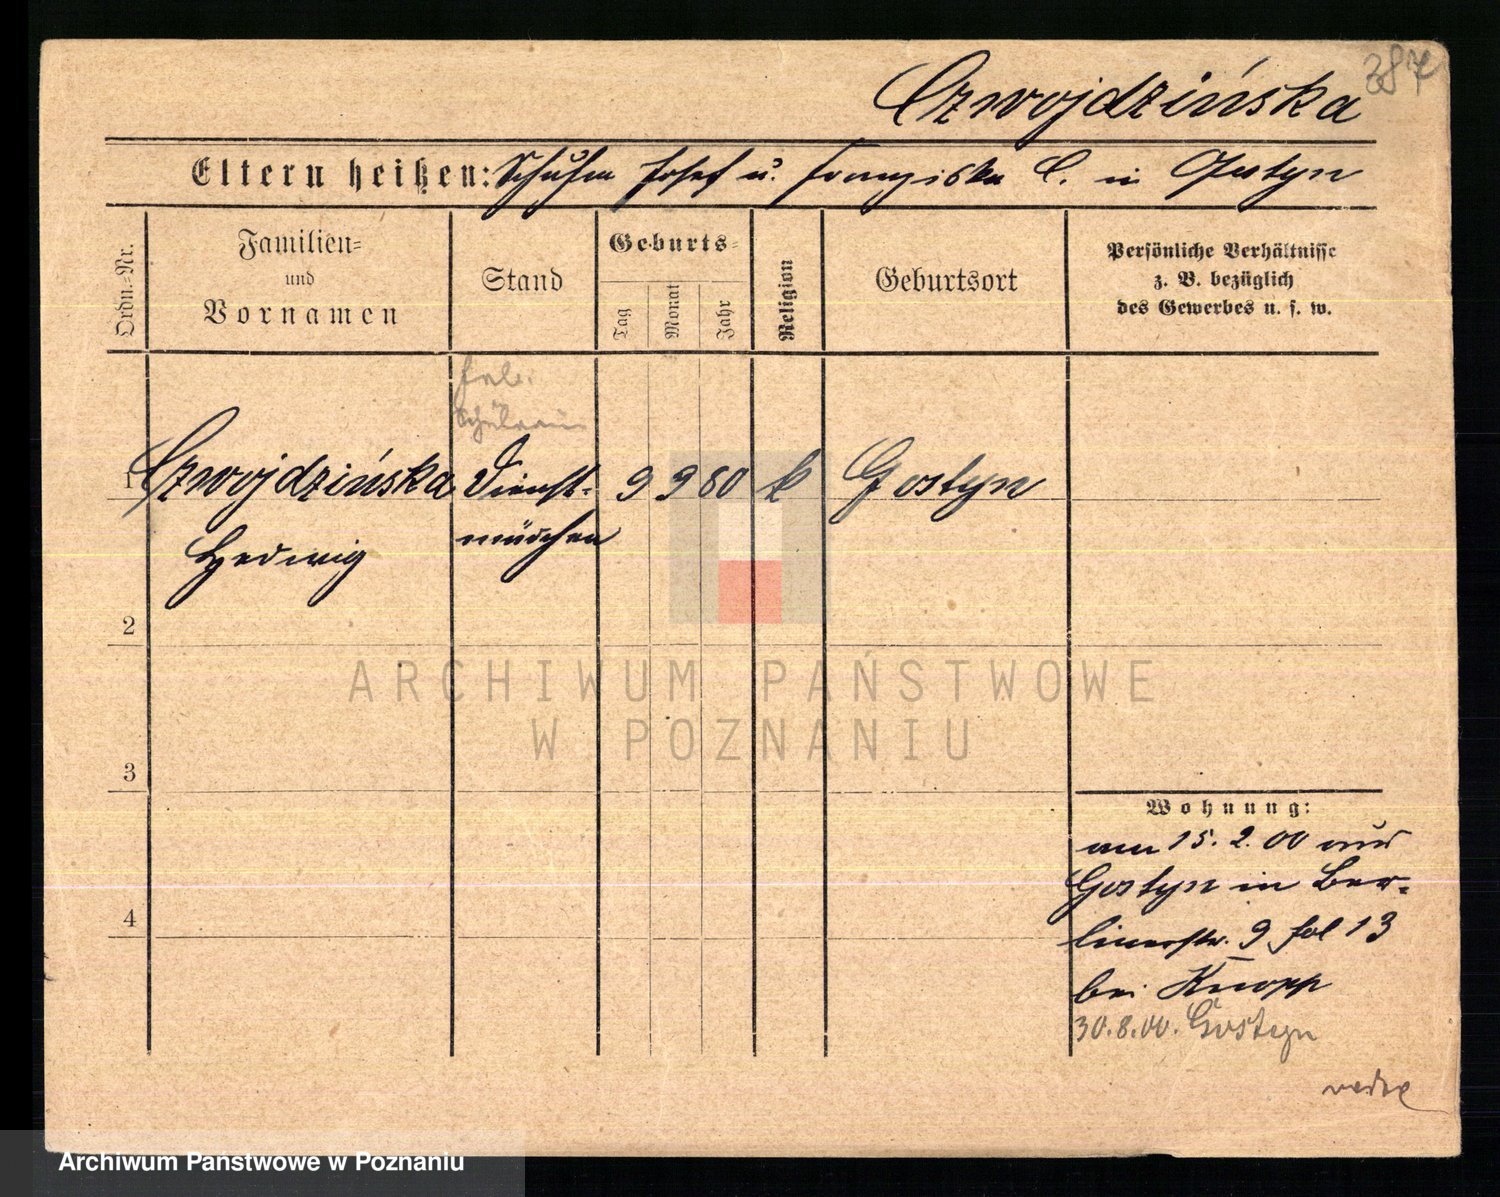 387
Czwojdzińska
Eltern heißen: Josef u. Franziska C. in Gostyn
Ordn.=Nr.
Familien=
und
Vornamen
Stand
Geburts=
Tag
Monat
Jahr
Religion
Geburtsort
Persönliche Verhältnisse
z. B. bezüglich
des Gewerbes u. s. w.
1 Czwojdzińska Dienst- 9 9 80 k Gostyn
Hedwig mädchen
2
3
4
Wohnung:
am 15.2.00 aus
Gostyn in Ber-
linerstr. 9 fol 13
bei Knopp
30.8.00. Gostyn
ARCHIWUM PAŃSTWOWE
W POZNANIU
Archiwum Państwowe w Poznaniu